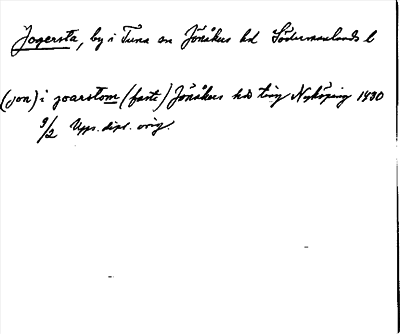 Jogersta, by i Tuna sn Jönåkers hd Södermanlands l
(jon) i joarstom (faste) Jönåkers hds ting Nyköping 1430
9/2 Upps. dipl. orig.